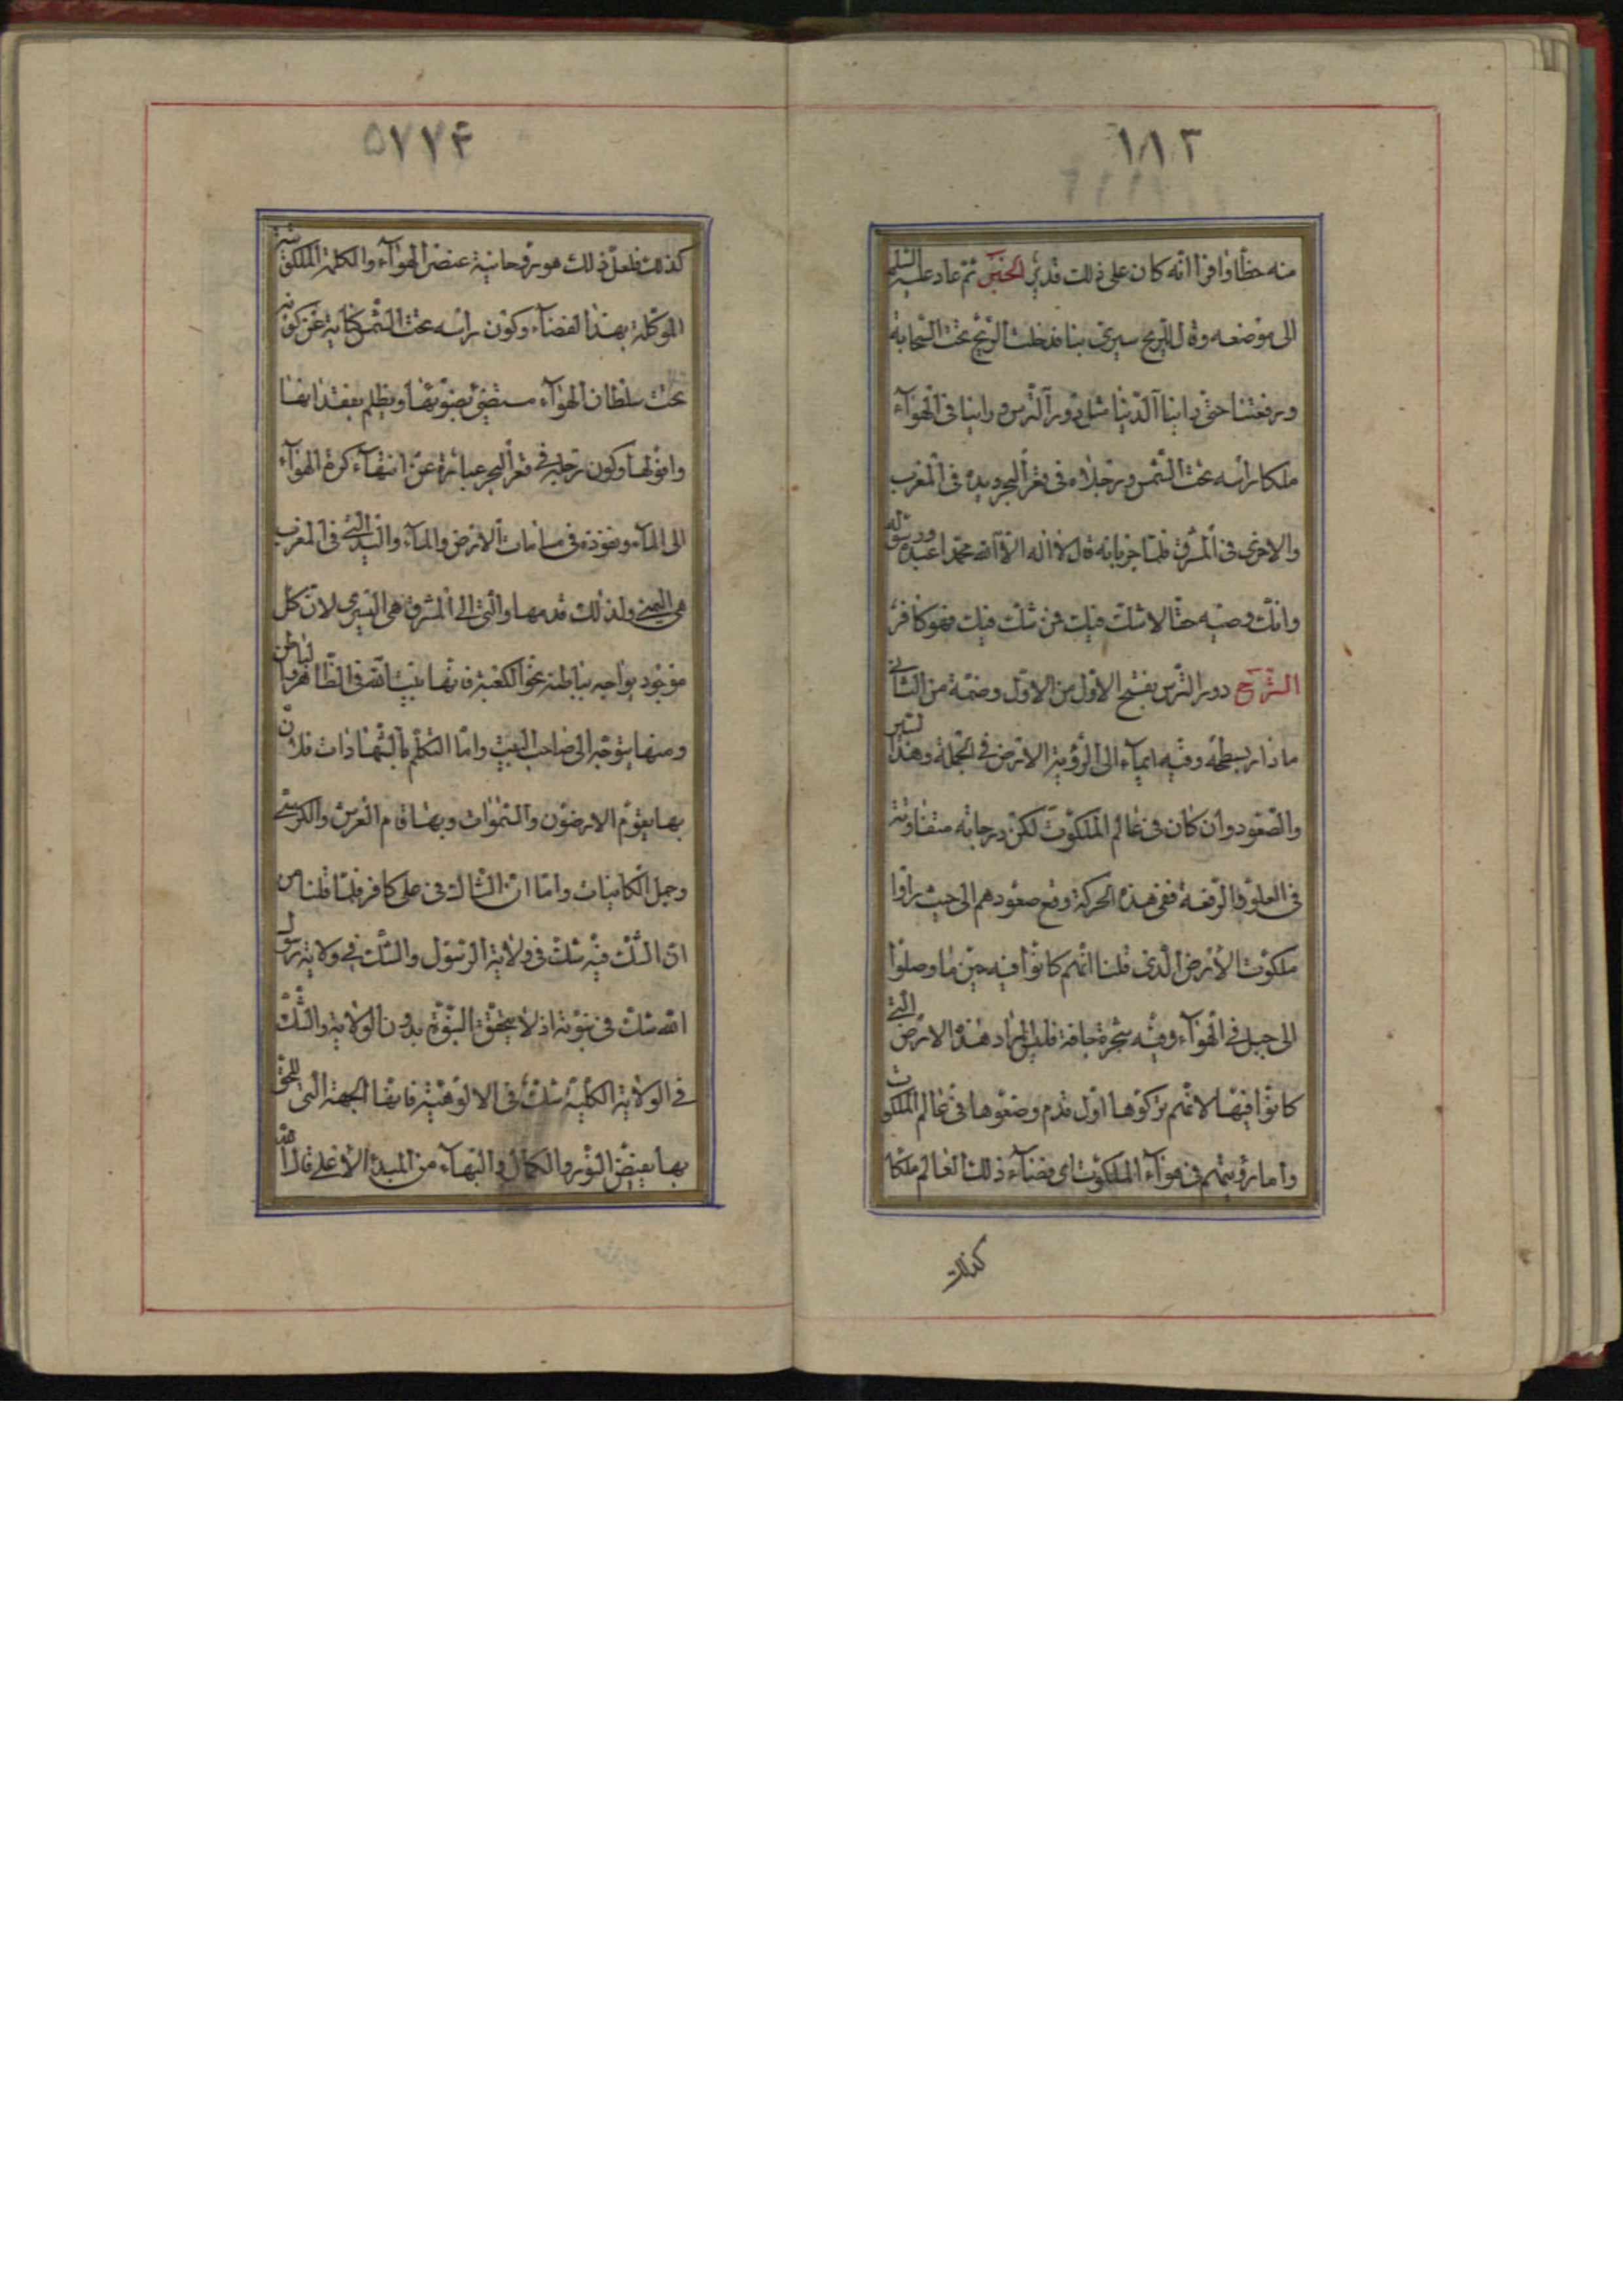 ١٨٣
منه حظا وافرا انه كان على ذلك قدير الخبر ثم عاد عليه السلم
الى موضعه وقال للريح سيرى بنا فدخلت الريح تحت السحابة
ورفعتنا حتى راينا الدنيا مثل دور الترس وراينا فى الهوآء
ملكا راسه تحت الشمس ورجلاه فى قعر البحر ويده فى المغرب
والاخرى فى المشرق فلما جزنا به قال لا اله الا الله محمد اعبده ورسوله
وانك وصيه حقا لا شك فيك فمن شك فيك فهو كافر
الشرح دور الترس بفتح الاول من الاول وضمة من الثانى
ما دار بسطحه وفيه ايمآء الى الرؤية الارض فى الجملة وهذا السير
والصعود وان كان فى عالم الملكوت لكن درجاته متفاوتة
فى العلو والرفعة ففى هذه الحركة وقع صعودهم الى حيث راوا
ملكوت الارض الذى قلنا انهم كانوا فيه حين ما وصلوا
الى جبل فى الهوآء وفيه شجرة جافة فليس المراد هذه الارض التى
كانوا فيها لانهم تركوها اول قدم وضعوها فى عالم الملكوت
واما رؤيتهم فى هوآء الملكوت اى فضآء ذلك العالم ملكا
كذلك
٥٧٧۴
كذلك فلعل ذلك هو روحانية عنصر الهوآء والكلمة الملكوتية
الموكلة بهذا الفضآء وكون راسه تحت الشمس كناية عن كونه
تحت سلطان الهوآء مستضئ بضوئها ويظلم بفقدانها
وافولها وكون رجليه فى قعر البحر عبارة عن انتهآء كرة الهوآء
الى المآء ونفوذه فى مسامات الارض والمآء واليد التى فى المغرب
هى اليمنى ولذلك قدمها والتى الى المشرق هى اليسرى لان كل
موجود يواجه بباطنه نحو الكعبة فانها بيت الله فى الظاهر والباطن
ومنها يتوجه الى صاحب البيت واما التكلم بالشهادات فلان
بها يقوم الارضون والسموات وبها قام العرش والكرسى
وجل الكاينات واما ان الشاك فى على كافر فلما قلنا من
ان الشك فيه شك فى ولاية الرسول والشك فى ولاية رسول
الله شك فى نبوته اذ لا يتحقق النبوة بدون الولاية والشك
فى الولاية الكلية شك فى الالوهية فانها الجهة التى للحق
بها يفيض النور والكمال والبهآء من المبدء الاعلى